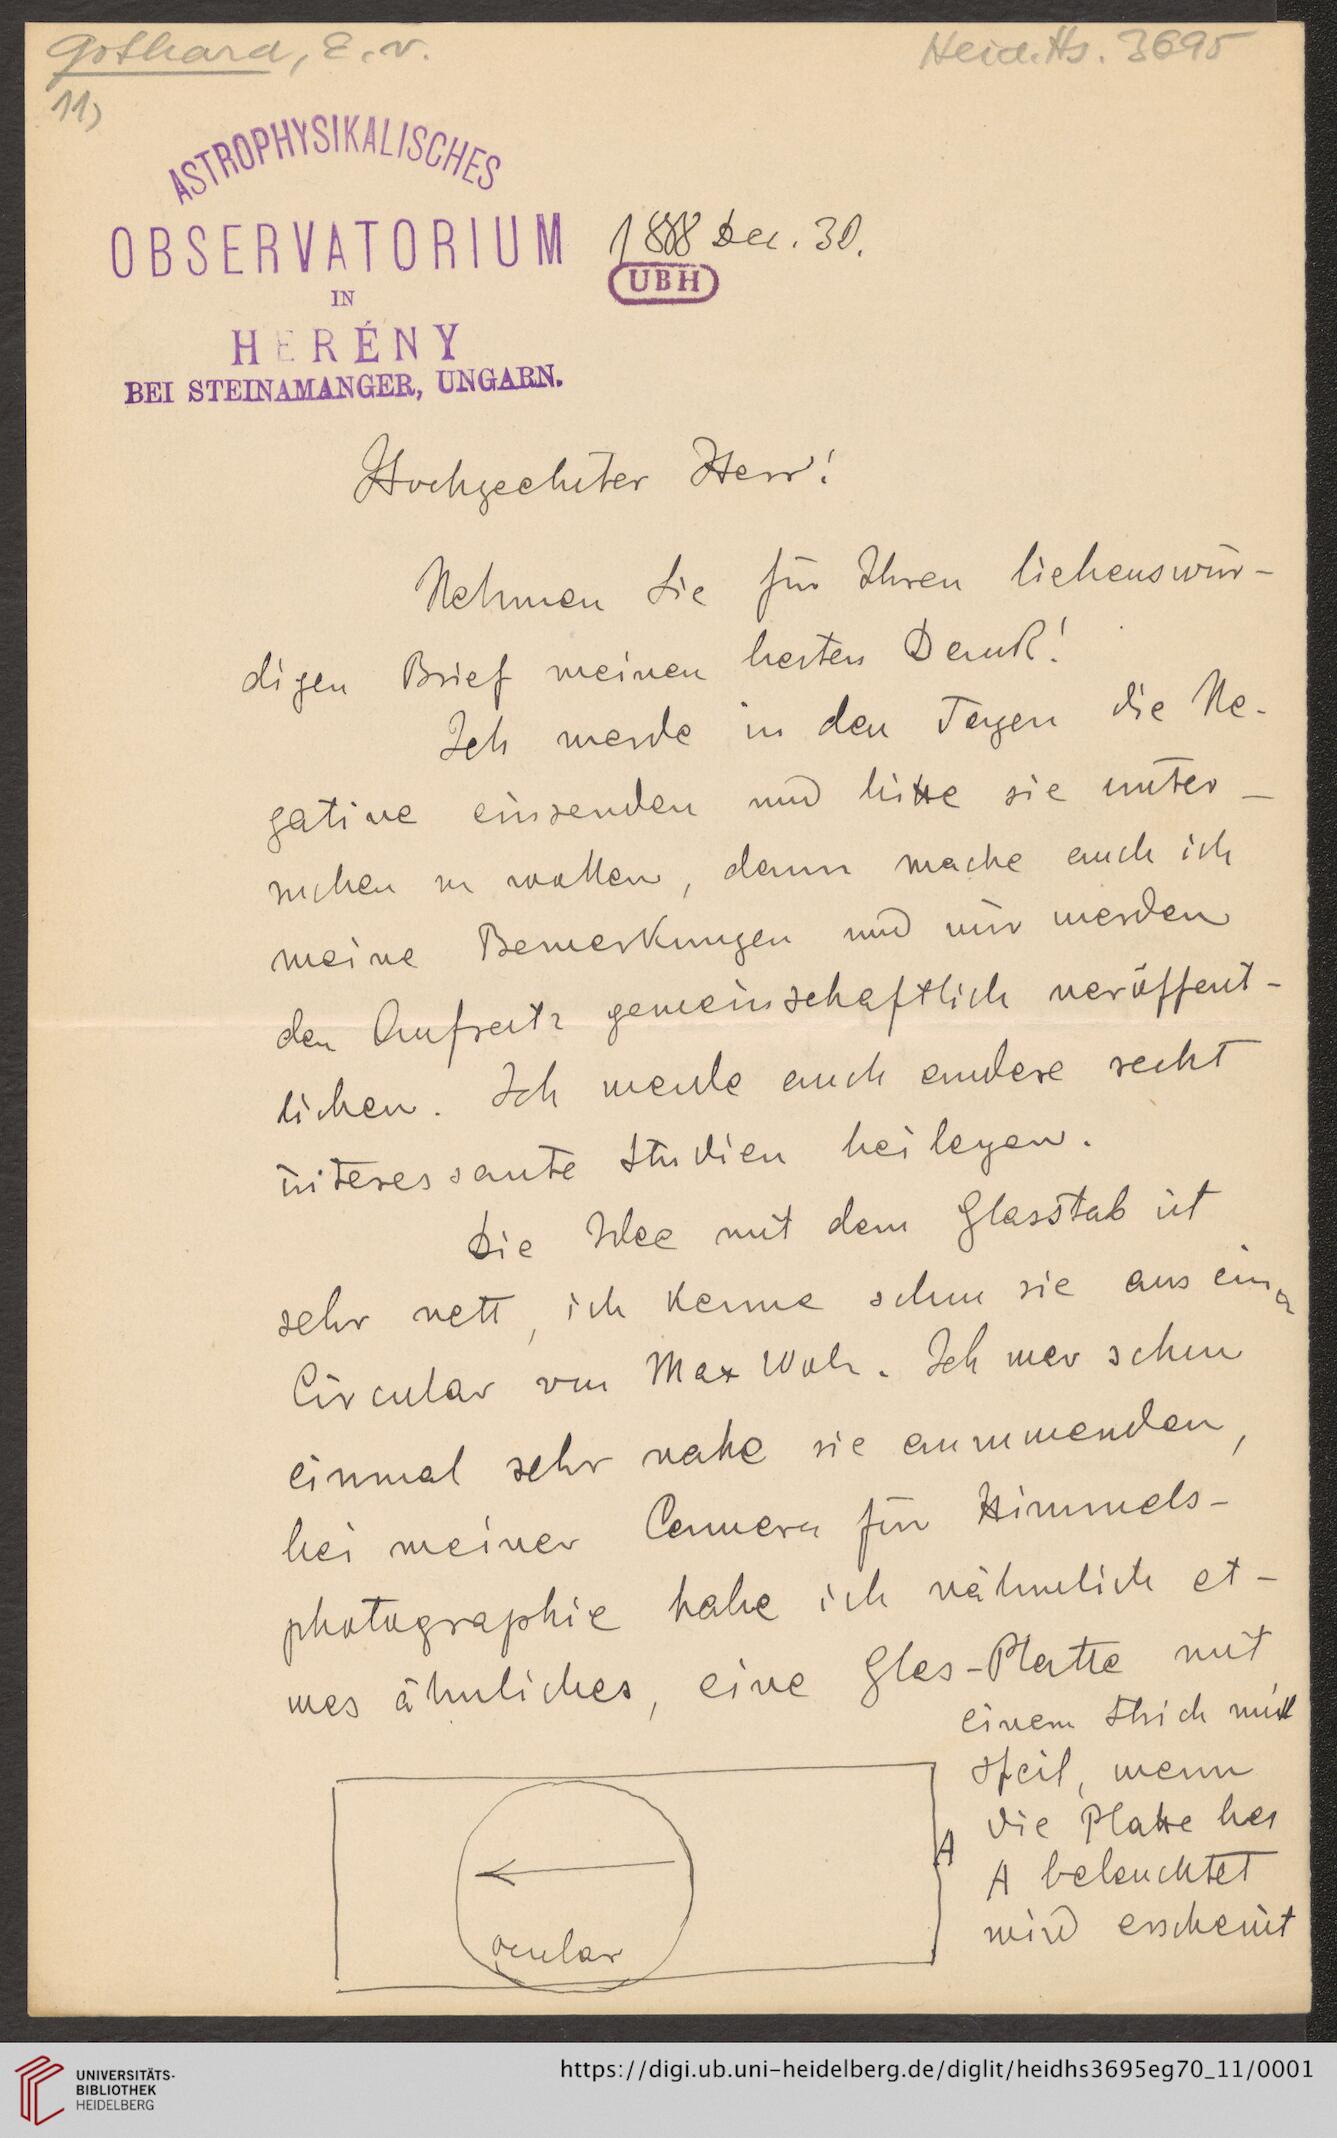 Gothard, E. v.
Heid. Hs. 3695
11)
ASTROPHYSIKALISCHES
OBSERVATORIUM
IN
HERÉNY
BEI STEINAMANGER, UNGARN.
1888 Dec. 30.
UBH
Hochgeehrter Herr!
Nehmen Sie für Ihren liebenswür-
digen Brief meinen besten Dank!
Ich werde in den Tagen die Ne-
gative einsenden und bitte sie unter-
suchen zu wollen, dann mache auch ich
meine Bemerkungen und wir werden
den Aufsatz gemeinschaftlich veröffent-
lichen. Ich werde auch andere recht
interessante Studien beilegen.
Die Idee mit dem Glasstab ist
sehr nett, ich kenne schon sie aus einer
Circular von Max Wolz. Ich war schon
einmal sehr nahe sie anzuwenden,
bei meiner Camera für Himmels-
photographie habe ich nähmlich et-
was ähnliches, eine Glas-Platte mit
einem Strich mit
Pfeil, wenn
die Platte bei
A beleuchtet
wird erscheint
A
ocular
UNIVERSITÄTS-
BIBLIOTHEK
HEIDELBERG
https://digi.ub.uni-heidelberg.de/diglit/heidhs3695eg70_11/0001